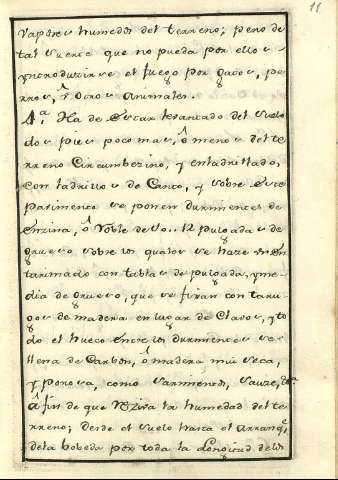 11
vapores humedos del terreno; pero de
tal suerte que no pueda por ellos
yntroduzirse el fuego por gatos, pe
rros, ỏ otros animales.
4.ª Ha de estar lebantado del suelo
dos pies poco mas, ô menos del te
rreno Circumbezino, y enladrillado,
con ladrillos de Canto, y sobre este
pabimento se ponen durmientes de
Enzina, ô Roble de 10.. 12 pulgadas de
grueso sobre los quales se haze un en
tarimado con tablas de pulgada, y me
dia de grueso, que se fixan con taru
gos de madera en lugar de Clavos, y to
do el hueco entre los durmientes se
llena de Carbon, ô madera mui seca,
y porosa, como sarmientos, sauze, &ª
â fin de que reziva la humedad del te
rreno; desde el suelo hasta el arranqe
dela bobeda por toda la longitud delos